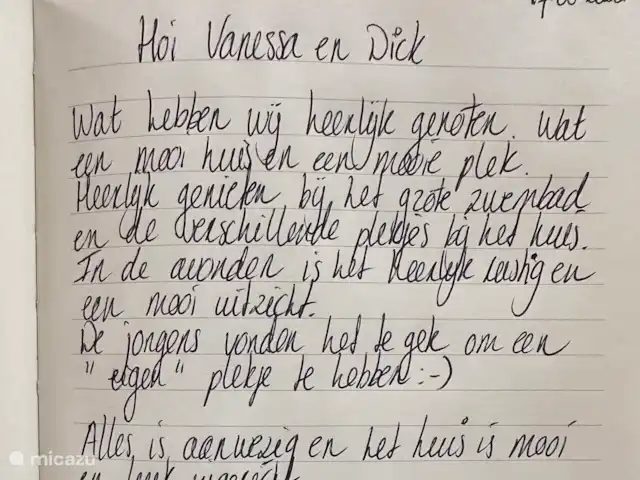 Hoi Vanessa en Dick
Wat hebben wij heerlijk genoten. Wat
een mooi huis en een mooie plek.
Heerlijk genieten bij het grote zwembad
en de verschillende plekjes bij het huis.
In de avonden is het heerlijk rustig en
een mooi uitzicht.
De jongens vonden het te gek om een
"eigen" plekje te hebben :-)
Alles is aanwezig en het huis is mooi
en leuk
micazu